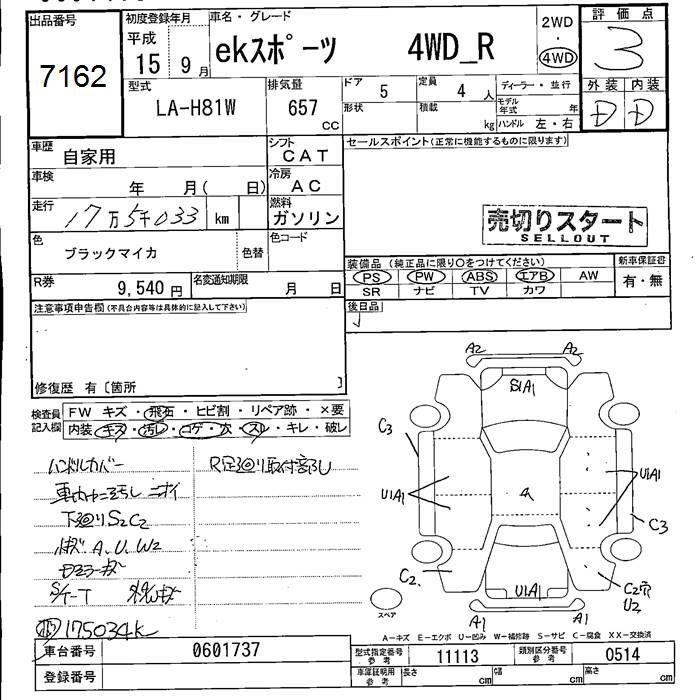 出品番号
7162
初度登録年月
平成
15 9月
車名・グレード
ekスポーツ 4WD_R
2WD
・
4WD
評価点
3
外装 内装
D D
型式
LA-H81W
排気量
657
cc
ドア
5
定員
4 人
形状
積載
kg
ディーラー・並行
モデル年式 年
ハンドル 左・右
車歴
自家用
シフト
CAT
車検
年 月( 日)
冷房
AC
走行
17万5千033
km
燃料
ガソリン
色
ブラックマイカ
色替
色コード
R券
9,540 円
名変通知期限
月 日
セールスポイント(正常に機能するものに限ります)
売切りスタート
SELLOUT
装備品(純正品に限り○をつけてください)
PS PW ABS エアB AW
SR ナビ TV カワ
新車保証書
有・無
後日品
注意事項申告欄(不具合内容等は具体的に記入して下さい)
修復歴 有〔箇所 〕
検査員
記入欄
FW キズ・飛石・ヒビ割・リペア跡・×要
内装 キズ・汚レ・コゲ・穴・スレ・キレ・破レ
ハンドルカバー
車内ヤニ汚し ニオイ
下回りS2C2
A、U、W2
R足回り取付
175034k
A2 A2
S1A1
C3
U1A1
U1A1
C3
C2
U1A1
C2穴
U2
A1 A1
スペア
A-キズ E-エクボ U-凹み W-補修跡 S-サビ C-腐食 XX-交換済
車台番号
0601737
登録番号
型式指定番号
参考
11113
類別区分番号
参考
0514
車庫証明用
参考
長さ cm
幅 cm
高さ cm